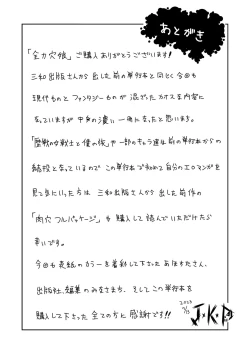 あとがき
「全力穴娘」ご購入ありがとうございます!
三和出版さんから出した前の単行本と同じく今回も
現代ものとファンタジーものが混ざったカオスな内容に
なっていますが中身の濃い一冊になったと思います。
「歴戦の女戦士と僕の夜」や一部のキャラ達は前の単行本からの
続投となっているのでこの単行本で初めて自分のエロマンガを
見て気にいった方は三和出版さんから出した前作の
「肉穴フルパッケージ」も購入して読んでいただけたら
幸いです。
今回も表紙のカラーを着彩して下さった
出版社、編集のみなさまち、そしてこの単行本を
購入して下さった全ての方に感謝です!!
2023
J.K.P